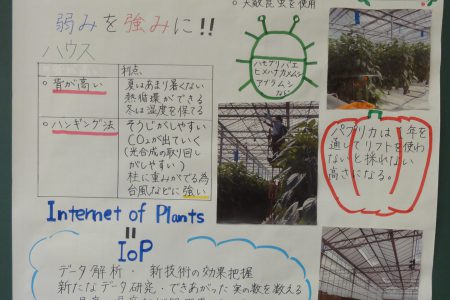 ○天敵昆虫を使用
弱みを強みに!!
ハウス
利点、
○背が高い
夏はあまり暑くない
熱循環ができる
冬は温度を保てる
○ハンギング法
そうじがしやすい
CO₂が出ていく
(光合成の取り回し
がしやすい)
柱に重みがでる為
台風などに強い
ハモグリバエ
ヒメハナカメムシ
アブラムシ
など
パプリカは1年を
通してリフトを使わ
ないと採れない
高さになる。
Internet of Plants
=
IoP
データ解析・新技術の効果把握
新たなデータ研究・できあがった実の数を数える